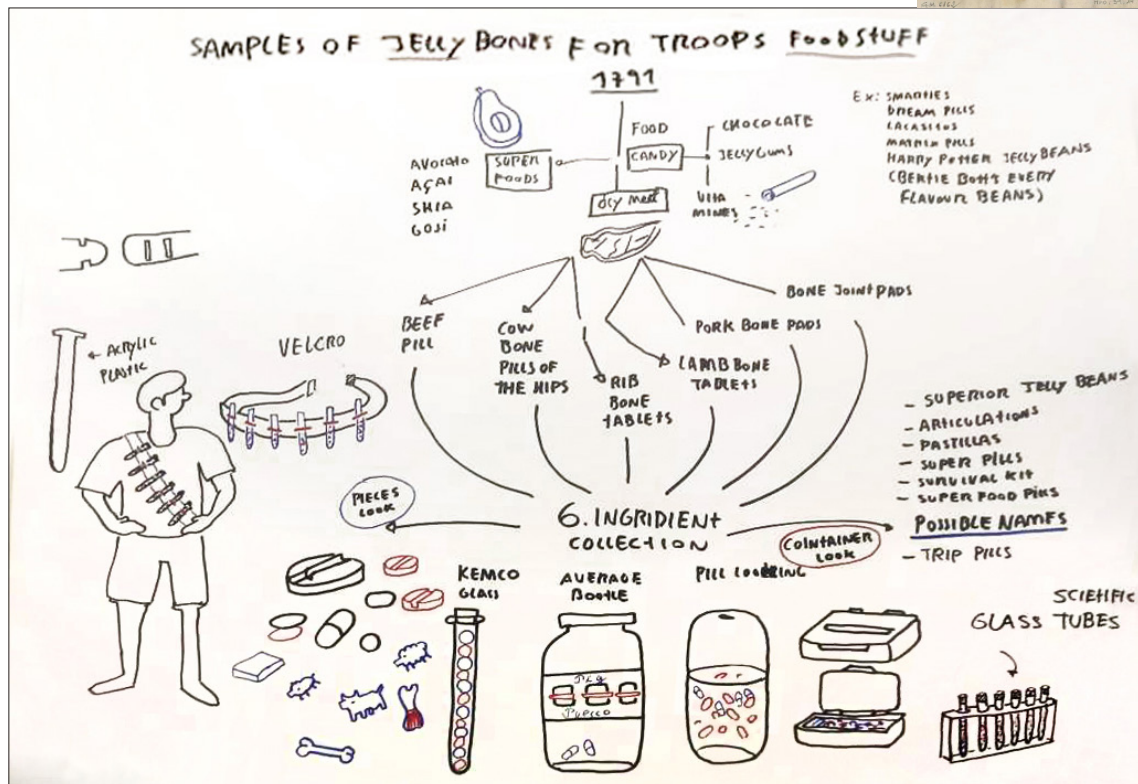 SAMPLES OF JELLY BONES FOR TROOPS FOODSTUFF
1791
FOOD
CANDY
CHOCOLATE
JELLYGUMS
VITA
MINES
SUPER
FOODS
AVOCATO
AÇAI
SHIA
GOJÍ
dry meat
Ex: SMARTIES
DREAM PILLS
LACASITOS
MATRIX PILLS
HARRY POTTER JELLY BEANS
(BERTIE BOTTS EVERY
FLAVOUR BEANS)
BEEF
PILL
COW
BONE
PILLS OF
THE HIPS
RIB
BONE
TABLETS
LAMB BONE
TABLETS
PORK BONE PADS
BONE JOINT PADS
ACRYLIC
PLASTIC
VELCRO
- SUPERIOR JELLY BEANS
- ARTICULATIONS
- PASTILLAS
- SUPER PILLS
- SURVIVAL KIT
- SUPER FOOD PILLS
POSSIBLE NAMES
- TRIP PILLS
PIECES
LOOK
6. INGRIDIENT
COLLECTION
COINTAINER
LOOK
KEMCO
GLASS
AVERAGE
BOTTLE
PILL LOOKING
SCIETIFIC
GLASS TUBES